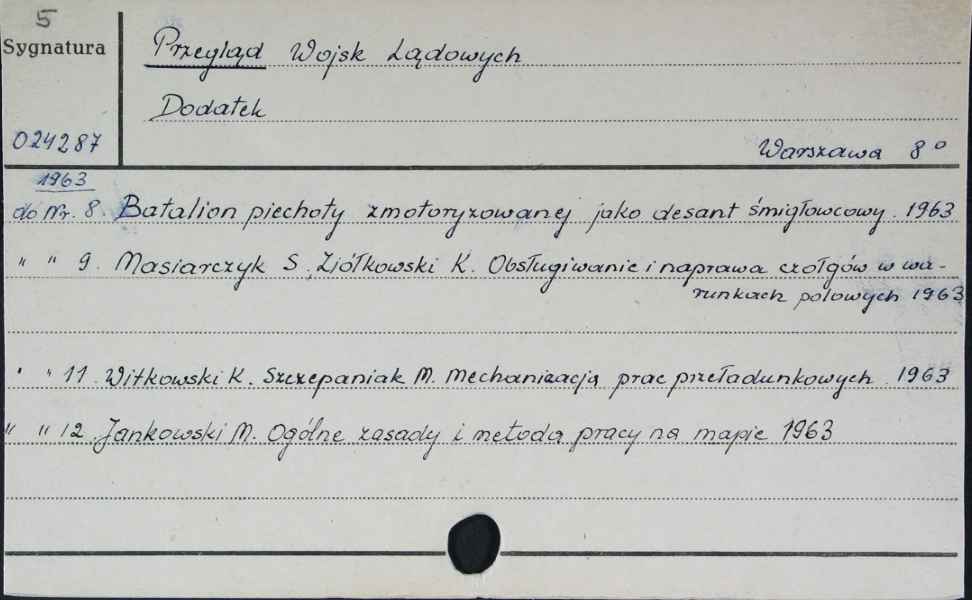 5
Sygnatura
Przegląd Wojsk Lądowych
Dodatek
024287
Warszawa 8°
1963
do Nr. 8. Batalion piechoty zmotoryzowanej jako desant śmigłowcowy. 1963
" " 9. Masiarczyk S. Ziółkowski K. Obsługiwanie i naprawa czołgów w wa-
runkach polowych 1963
" " 11. Witkowski K. Szczepaniak M. Mechanizacja prac przeładunkowych. 1963
" " 12. Jankowski M. Ogólne zasady i metoda pracy na mapie 1963